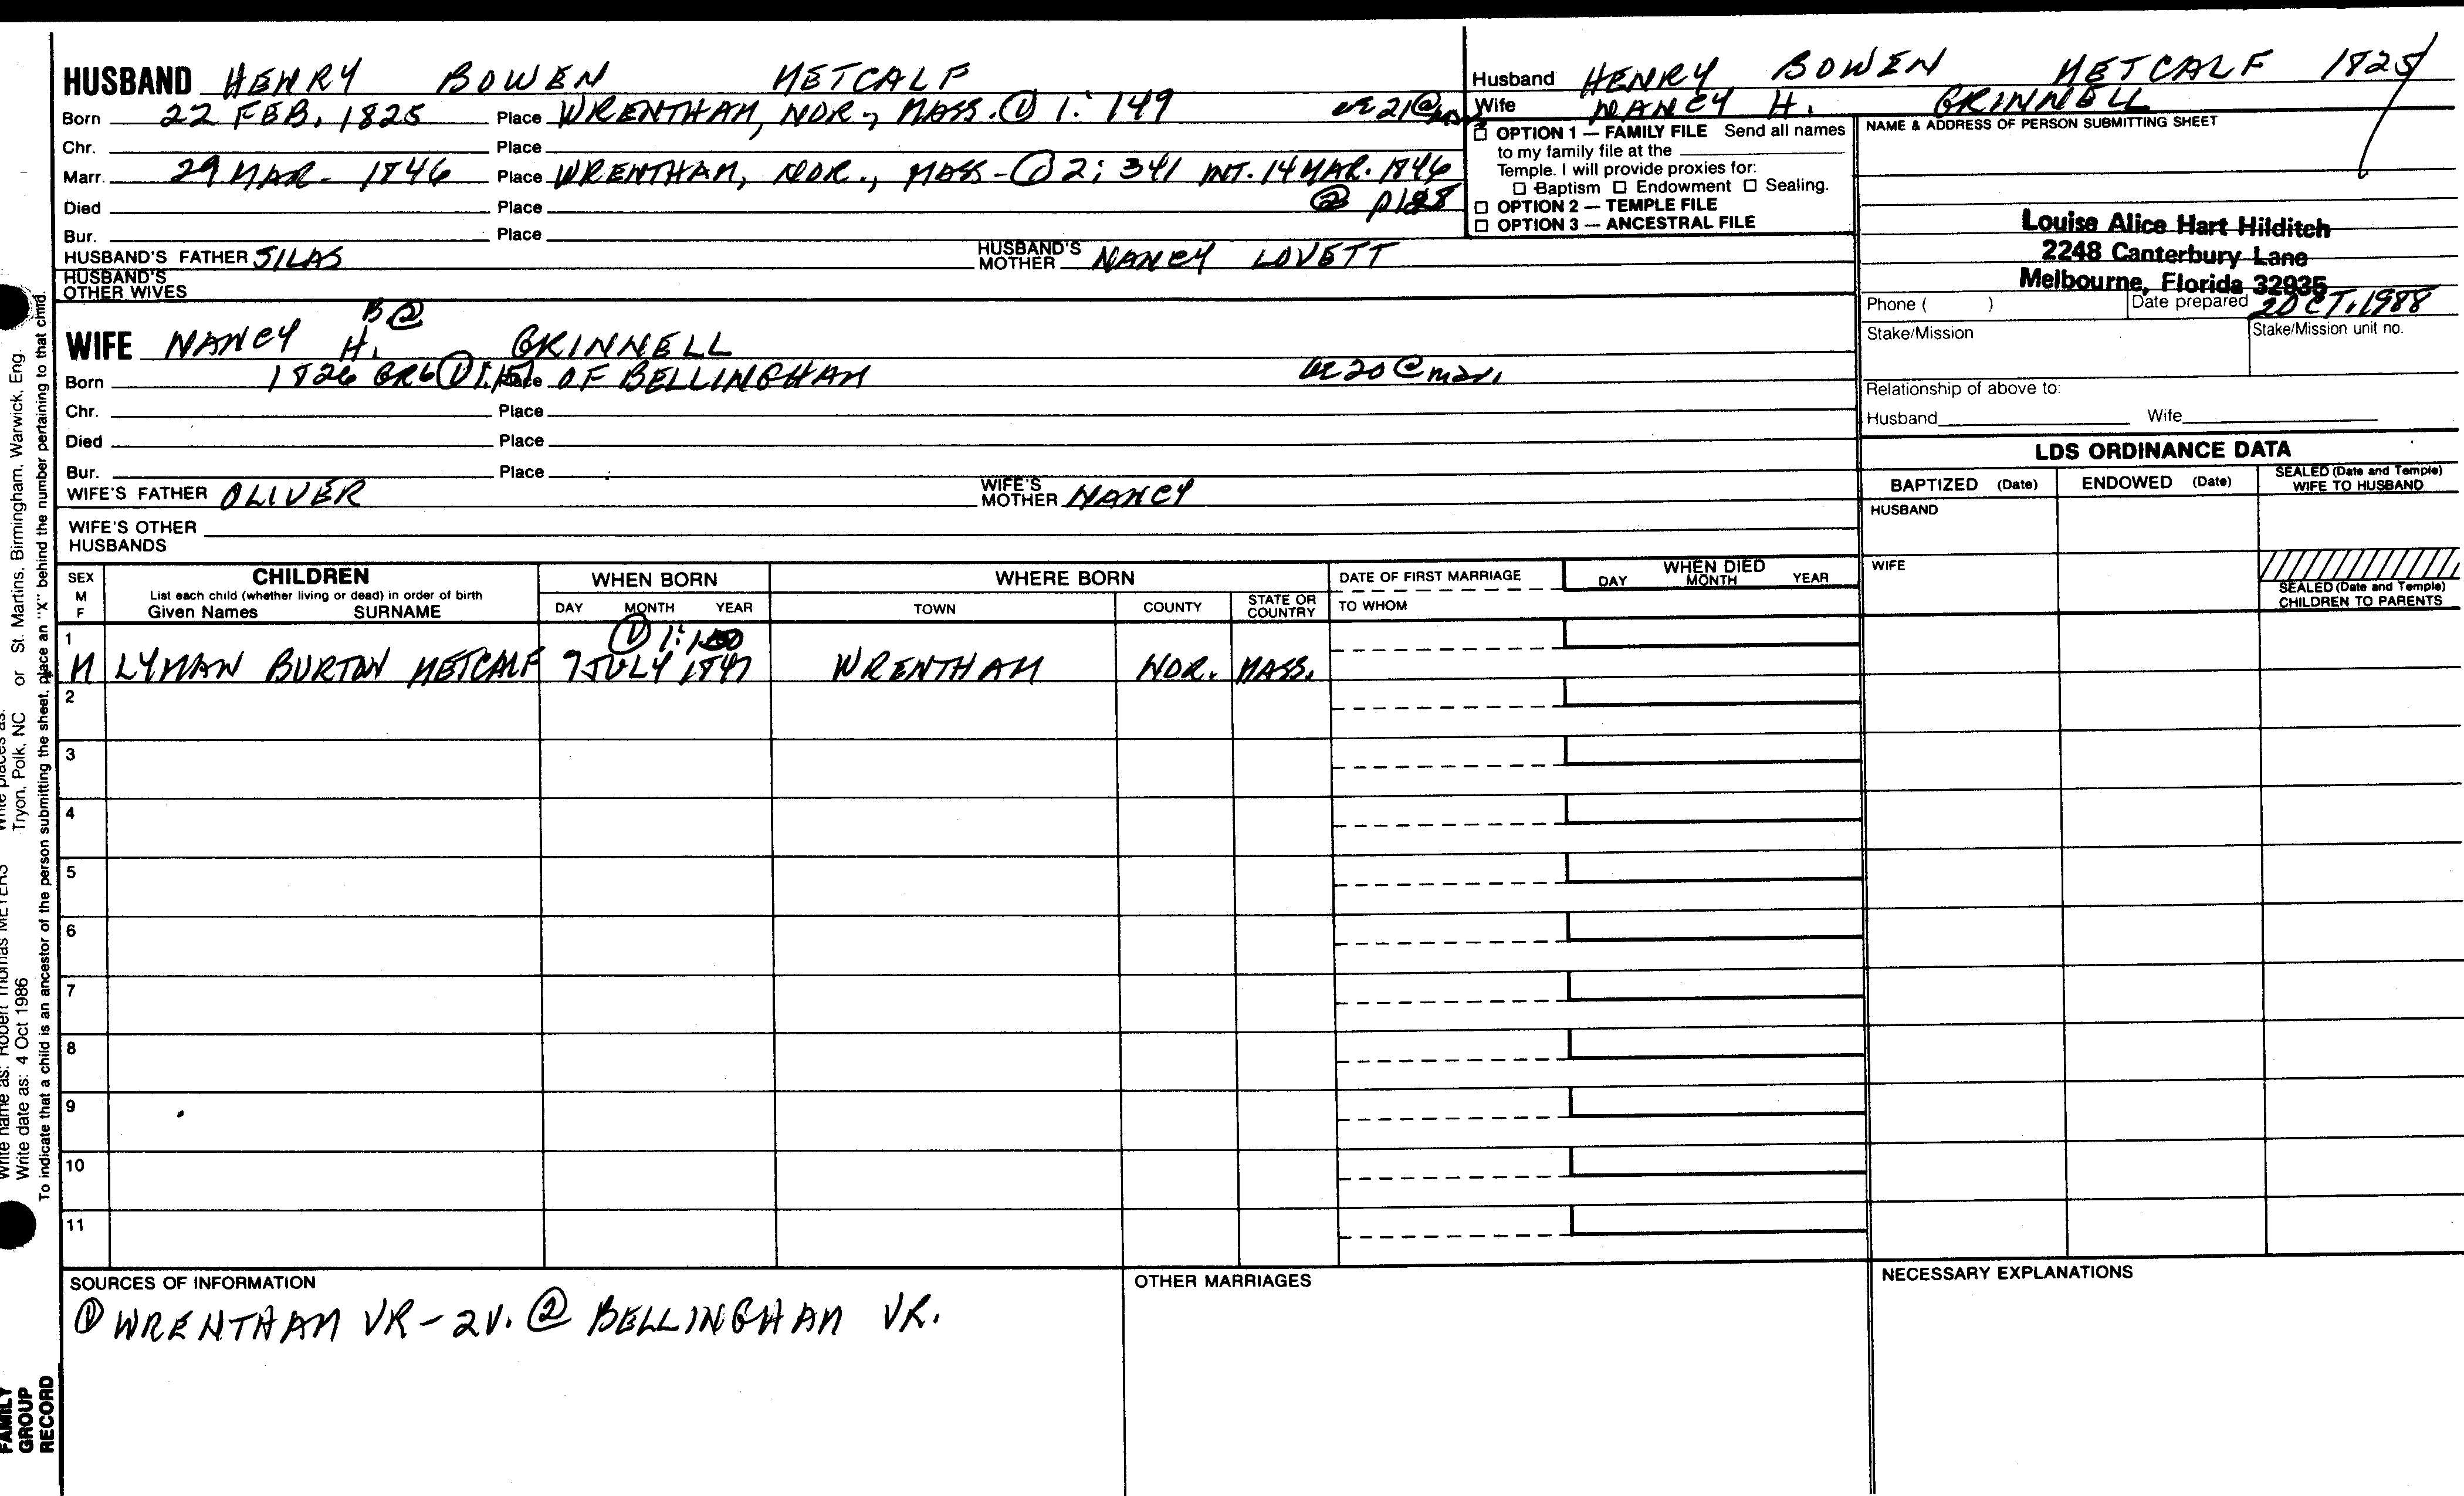 HUSBAND HENRY BOWEN METCALF
Born 22 FEB. 1825 Place WRENTHAM, NOR., MASS. ① 1:149 ae 21@
Chr. Place
Marr. 29 MAR. 1846 Place WRENTHAM, NOR., MASS - ① 2:341 INT. 14 MAR. 1846
Died Place ② p188
Bur. Place
HUSBAND'S FATHER SILAS HUSBAND'S MOTHER NANCY LOVETT
HUSBAND'S OTHER WIVES
B②
WIFE NANCY H. GRINNELL
Born 1826 GR6 ① Place OF BELLINGHAM ae 20 @ mar.
Chr. Place
Died Place
Bur. Place
WIFE'S FATHER OLIVER WIFE'S MOTHER NANCY
WIFE'S OTHER HUSBANDS
Husband HENRY BOWEN METCALF 1825
Wife NANCY H. GRINNELL
☐ OPTION 1 — FAMILY FILE Send all names
to my family file at the
Temple. I will provide proxies for:
☐ Baptism ☐ Endowment ☐ Sealing.
☐ OPTION 2 — TEMPLE FILE
☐ OPTION 3 — ANCESTRAL FILE
NAME & ADDRESS OF PERSON SUBMITTING SHEET
Louise Alice Hart Hilditch
2248 Canterbury Lane
Melbourne, Florida 32935
Phone ( ) Date prepared 2 OCT. 1988
Stake/Mission Stake/Mission unit no.
Relationship of above to:
Husband Wife
LDS ORDINANCE DATA
BAPTIZED (Date) ENDOWED (Date) SEALED (Date and Temple) WIFE TO HUSBAND
HUSBAND
WIFE
SEALED (Date and Temple) CHILDREN TO PARENTS
SEX M F
CHILDREN
List each child (whether living or dead) in order of birth
Given Names SURNAME
WHEN BORN
DAY MONTH YEAR
WHERE BORN
TOWN COUNTY STATE OR COUNTRY
DATE OF FIRST MARRIAGE
TO WHOM
WHEN DIED
DAY MONTH YEAR
1 ① 1:150
M LYMAN BURTON METCALF 7 JULY 1847 WRENTHAM NOR. MASS.
2
3
4
5
6
7
8
9
10
11
SOURCES OF INFORMATION
① WRENTHAM VR - 2V. ② BELLINGHAM VR.
OTHER MARRIAGES
NECESSARY EXPLANATIONS
or St. Martins, Birmingham, Warwick, Eng.
Tryon, Polk, NC
Write date as: 4 Oct 1986
To indicate that a child is an ancestor of the person submitting the sheet, place an "X" behind the number pertaining to that child.
FAMILY
GROUP
RECORD